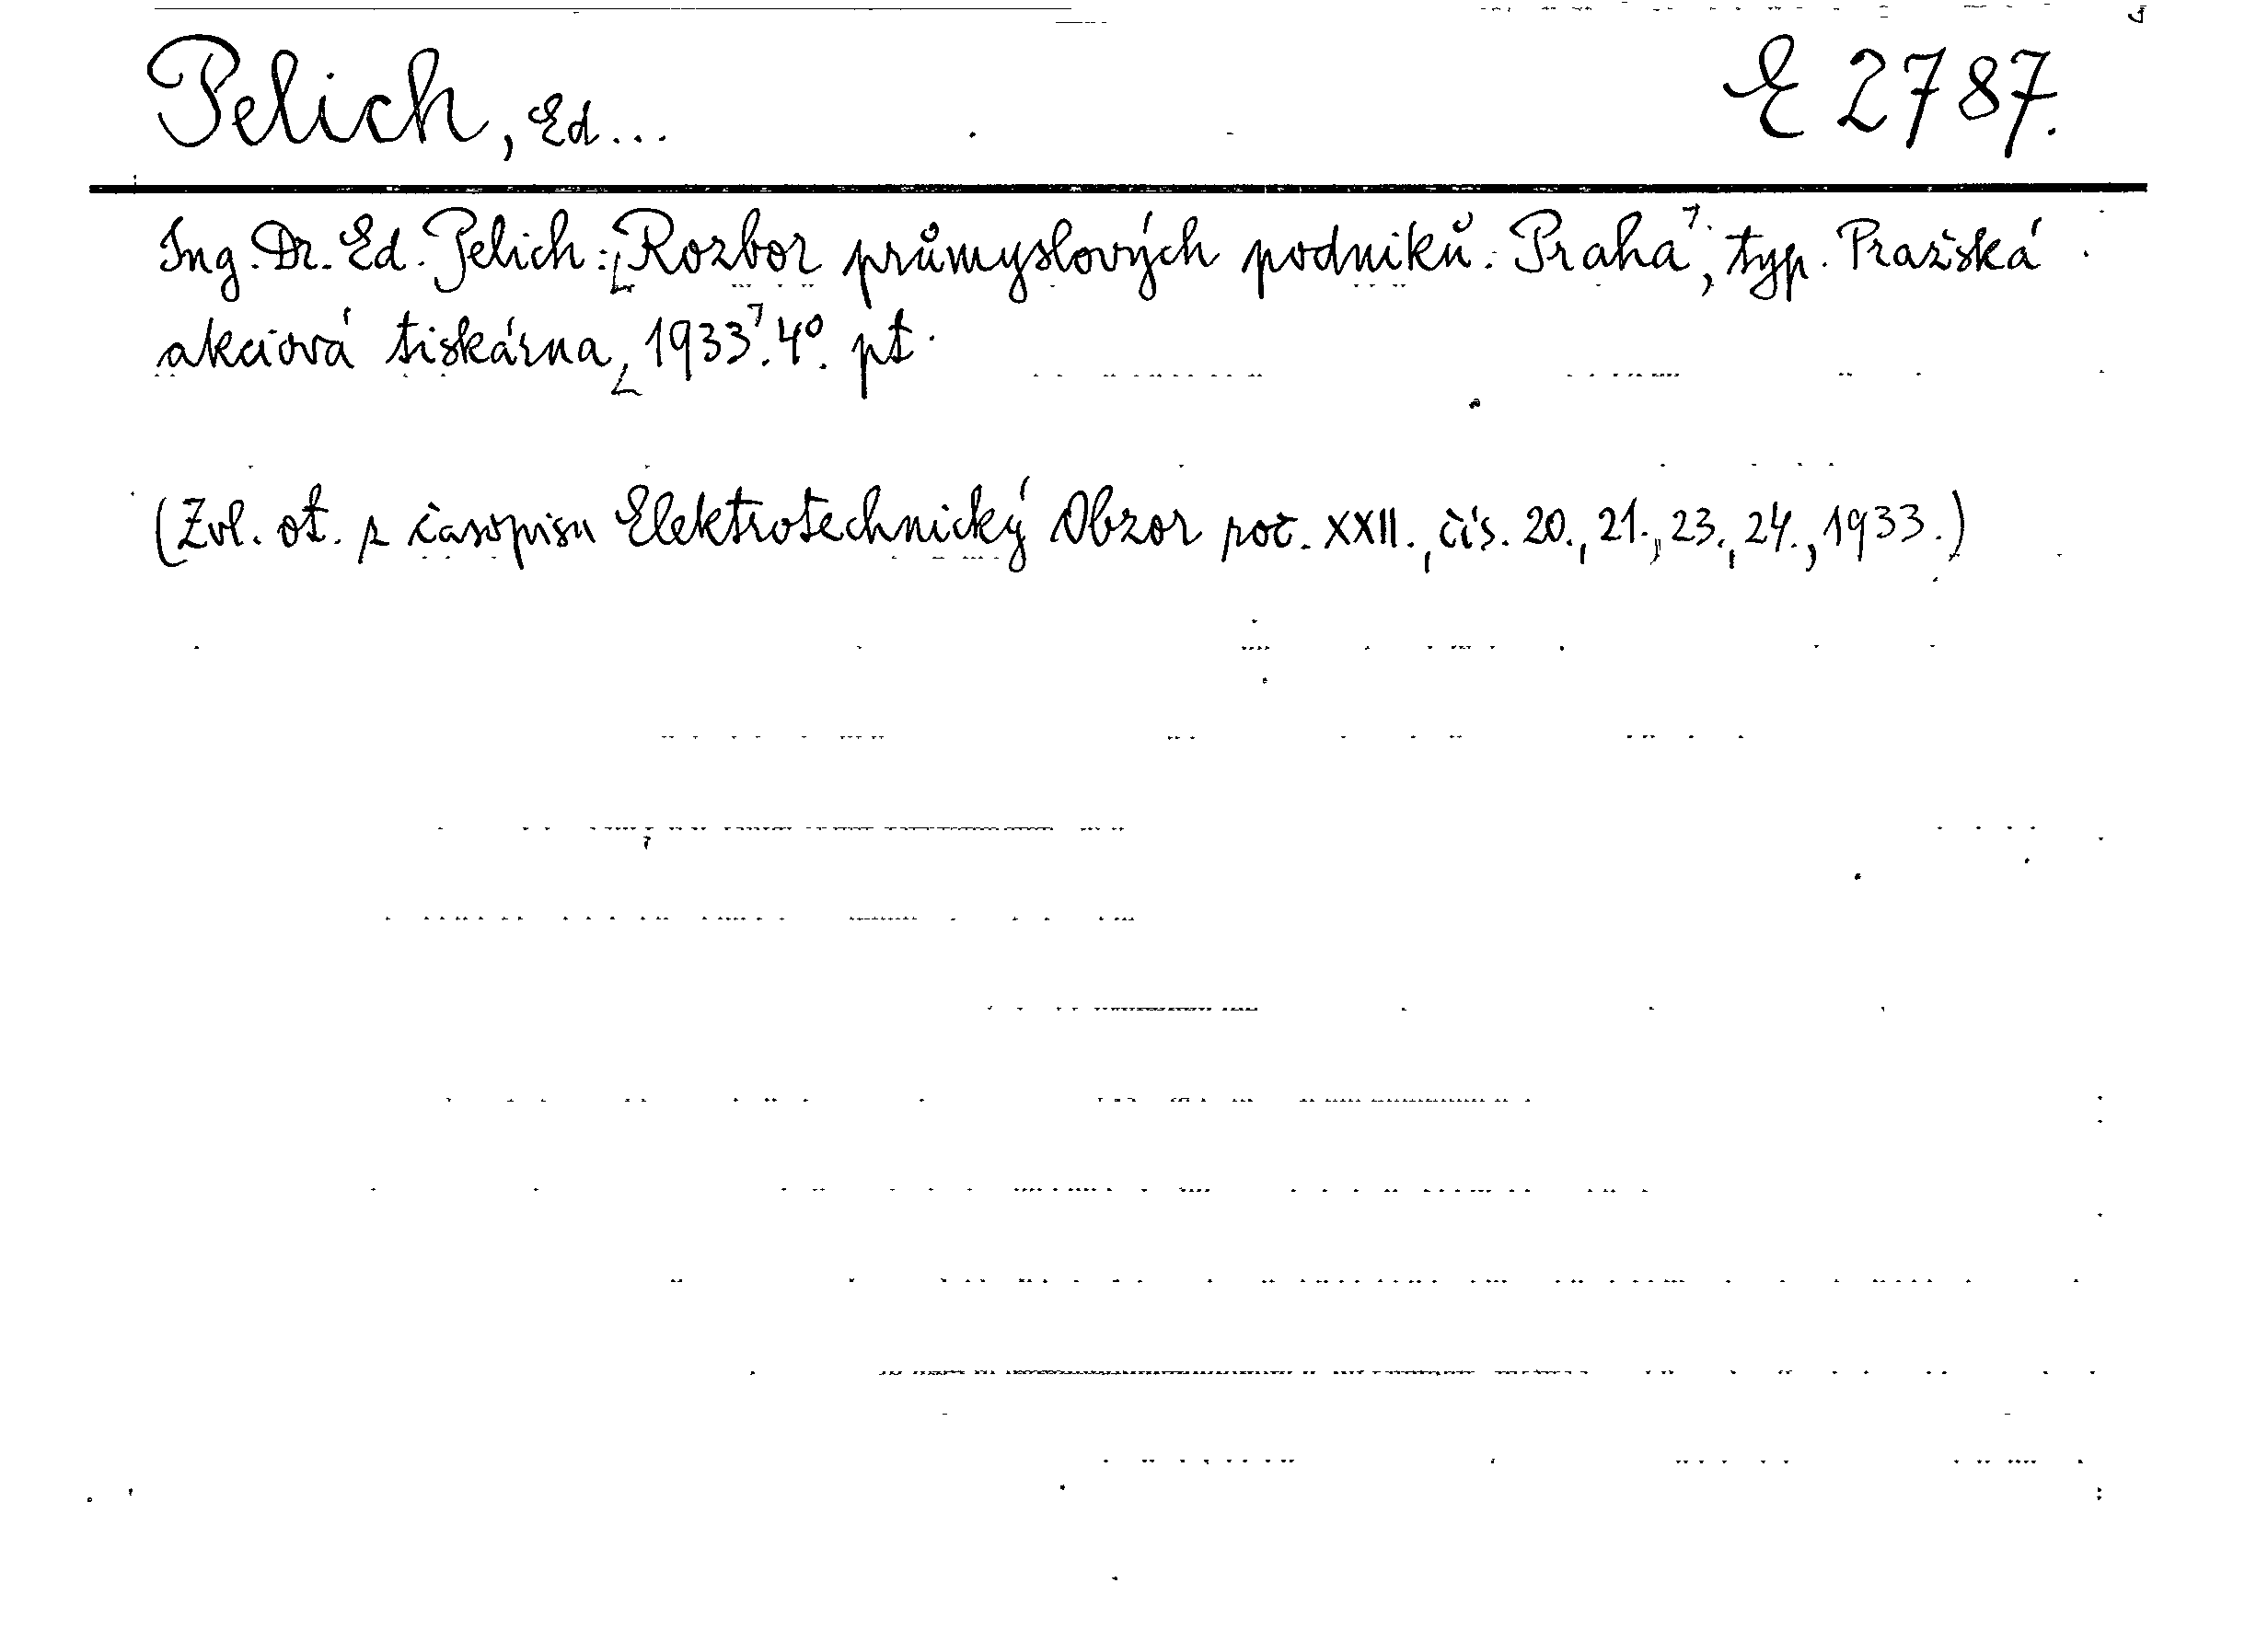 Pelich, Ed... E 2787.
Ing. Dr. Ed. Pelich: [Rozbor průmyslových podniků. Praha], typ. Pražská
akciová tiskárna, [1933]. 4°. pt.
(Zvl. ot. z časopisu Elektrotechnický Obzor roč. XXII., čís. 20., 21., 23., 24., 1933.)